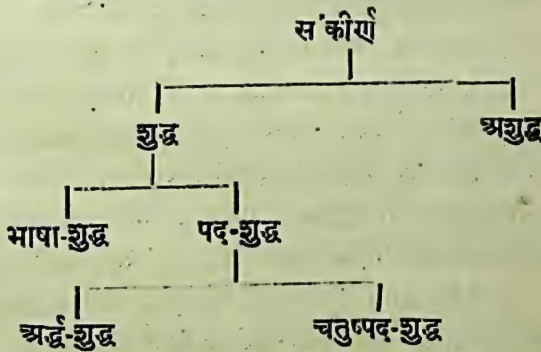 संकीर्ण
शुद्ध अशुद्ध
भाषा-शुद्ध पद-शुद्ध
अर्द्ध-शुद्ध चतुष्पद-शुद्ध